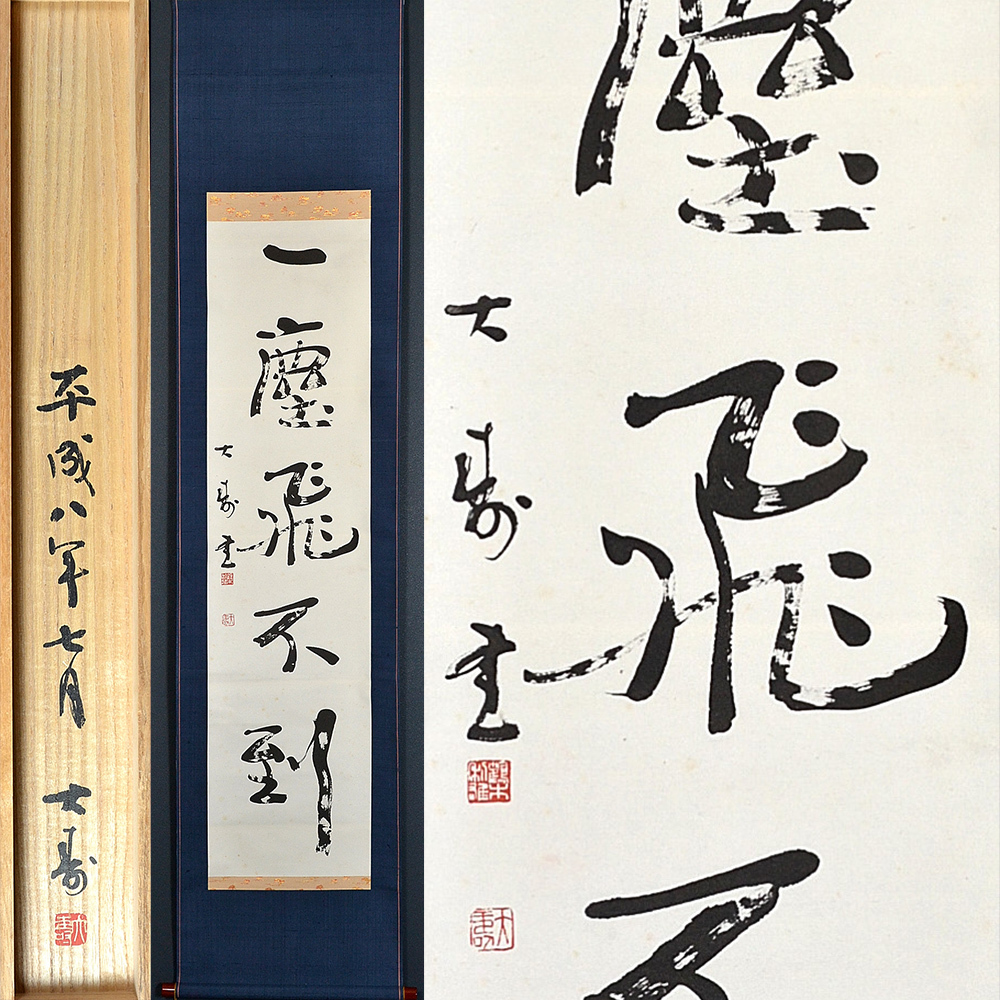 平成八年七月
大寿
一塵飛不到
大寿書
塵飛不
大寿書